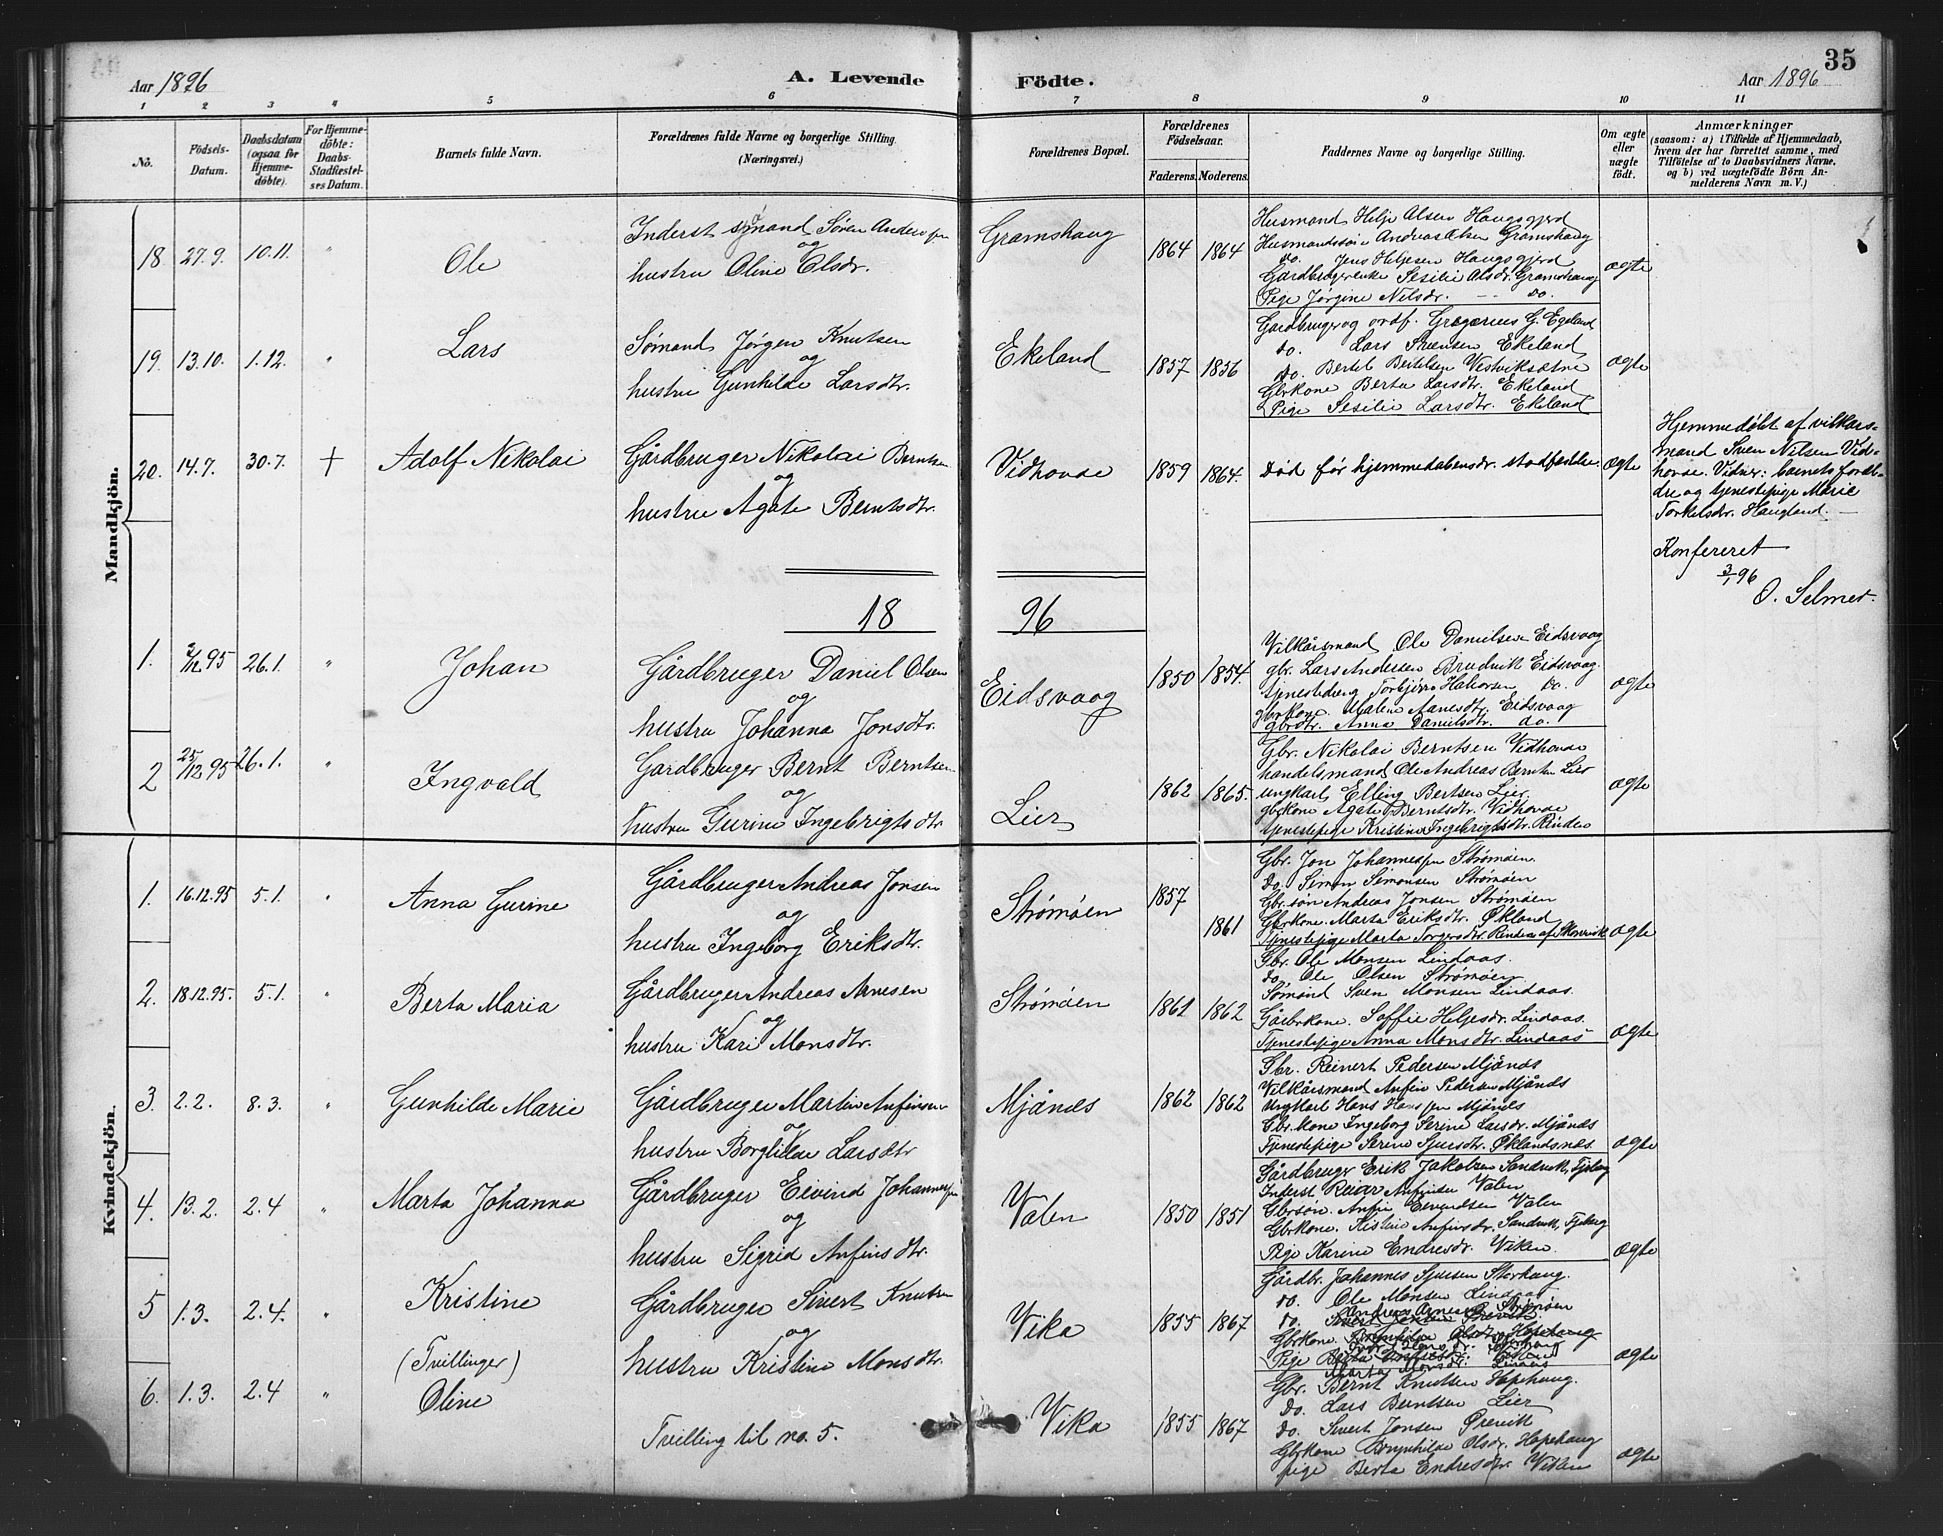 35
Aar 1896
A. Levende Födte.
Aar 1896
1 2 3 4 5 6 7 8 9 10 11
No.
Födsels-Datum.
Daabsdatum (ogsaa for Hjemmedöbte).
For Hjemmedöbte: Daabs-Stadfæstelses Datum.
Barnets fulde Navn.
Forældrenes fulde Navne og borgerlige Stilling. (Næringsvei.)
Forældrenes Bopæl.
Forældrenes Födselsaar.
Faderens. Moderens.
Faddernes Navne og borgerlige Stilling.
Om ægte eller uægte født.
Anmærkninger
(saasom: a) i Tilfælde af Hjemmedaab,
hvem der har forrettet samme, med
Tilföielse af to Daabsvidners Navne,
og b) ved uægtefödte Börn Anmelderens Navn m. V.)
Mandkjön.
18. 27.9. 10.11. " Ole
Inderst sømand Søren Andersen
og
hustru Oline Olsdr.
Gramshaug 1864 1864
Husmand Helje Olsen Haugsgjerd
Husmandssøn Andreas Olsen Gramshaug
do. Jens Heljesen Haugsgjerd
Gårdbrugerenke Sesilie Olsdr. Gramshaug
Pige Jørgine Nilsdr. do.
ægte
19. 13.10. 1.12. " Lars
Sømand Jørgen Knutsen
og
hustru Gunhilde Larsdtr.
Ekeland 1857 1856
Gardbruger og ordf. Gregorius G. Egeland
do. Lars Svensen Ekeland
do. Bertel Bertelsen Vestviksætre
Gbrkone Berta Larsdtr. Ekeland
Pige Sesilie Larsdtr. Ekeland
ægte
20. 14.7. 30.7. + Adolf Nikolai
Gårdbruger Nikolai Berntsen
og
hustru Agate Berntsdtr.
Vidhovde 1859 1864.
Død før hjemmedåbens stadfæstelse.
ægte
Hjemmedøbt af vilkårsmand
Sven Nilsen Vidhovde.
Vidner: barnets forældre
og tjenestepige Marie
Torkelsdr. Haugland.
Konfereret
3/1 96
O. Selmer.
18 96
1. 2/12 95 26.1. " Johan
Gårdbruger Daniel Olsen
og
hustru Johanna Jonsdtr.
Eidsvaag 1850 1854.
Vilkårsmand Ole Danielsen Eidsvaag
gbr. Lars Andersen Brudvik Eidsvaag.
tjenestedreng Torbjørn Halvorsen do.
gbrkone. Malene Aanesdtr. Eidsvaag
gbrdtr. Anna Danielsdtr. do.
ægte
2 25/12 95 26.1. " Ingvald
Gardbruger Bernt Berntsen
og
hustru Gurine Ingebrigtsdtr
Lier 1862 1865.
Gbr. Nikolai Berntsen Vidhovde
handelsmand Ole Andreas Berntsen Lier
ungkarl Elling Bertsen Lier
gbrkone Agate Berntsdtr. Vidhovde
tjenestepige Kristine Ingebrigtsdtr. Rinden
ægte
Kvindekjön.
1. 16.12.95 5.1. " Anna Gurine
Gårdbruger Andreas Jonsen
og
hustru Ingeborg Eriksdtr.
Strømøen 1857 1861
Gbr. Jon Johannessen Strømøen.
do. Simon Simonsen Strømøen
Gbr.søn Andreas Jonsen Strømøen
Gbrkone. Marta Eriksdtr. Økland
Tjenestepige Marta Torgersdtr. Rinden af Skonevik
ægte
2. 18.12.95. 5.1. " Berta Maria
Gårdbruger Andreas Arnesen
og
hustru Kari Monsdtr.
Strømøen 1861 1862
Gbr. Ole Monsen Lindaas.
do. Ole Olsen Strømøen
Sømand Sven Monsen Lindaas.
Gårbrkone. Soffie Heljesdr. Lindaas.
Tjenestepige Anna Monsdtr. Lindaas
ægte
3. 2.2. 8.3. " Gunhilde Marie
Gårdbruger Martin Anfinsen
og
hustru Borghilde Larsdtr
Mjånes 1862 1862
Gbr. Reinert Pedersen Mjånes
Vilkårsmand Anfin Pedersen Mjånes
Ungkarl Hans Hansen Mjånes
Gbr. kone Ingeborg Serine Larsdr. Mjånes
Tjenestepige Serine Sjursdtr. Øklandsnes.
ægte
4. 13.2. 2.4 " Marta Johanna
Gårdbruger Eivind Johannessen
og
hustru Sigrid Anfinsdtr.
Valen 1850 1851
Gårdbruger Erik Jakobsen Sandvik, Fjeberg
Inderst Reiar Anfinsen Valen
Gbrsøn. Anfin Eivendsen Valen
Gbrkone. Kistine Anfinsdr. Sandvik, Fjeberg
Pige Karine Endresdr. Viken.
ægte
5 1.3. 2.4. " Kristine
(Tvillinger)
Gårdbruger Sivert Knutsen
og
hustru Kristine Monsdtr.
Vika 1855 1867
Gårdbr. Johannes Sjursen Storhaug.
do. Ole Monsen Lindaas
do. Andreas Arnesen Strømøen
Gbrkone.
Pige
ægte
6. 1.3. 2.4 " Oline
Tvilling til no. 5.
Vika 1855 1867
Gbr. Bernt Knutsen Hopehaug.
do. Lars Berntsen Lier
do. Sivert Jonsen Ørevik
Gbrkone Brynhilde Olsdr. Hopehaug
pige Berta Endresdtr Viken
ægte